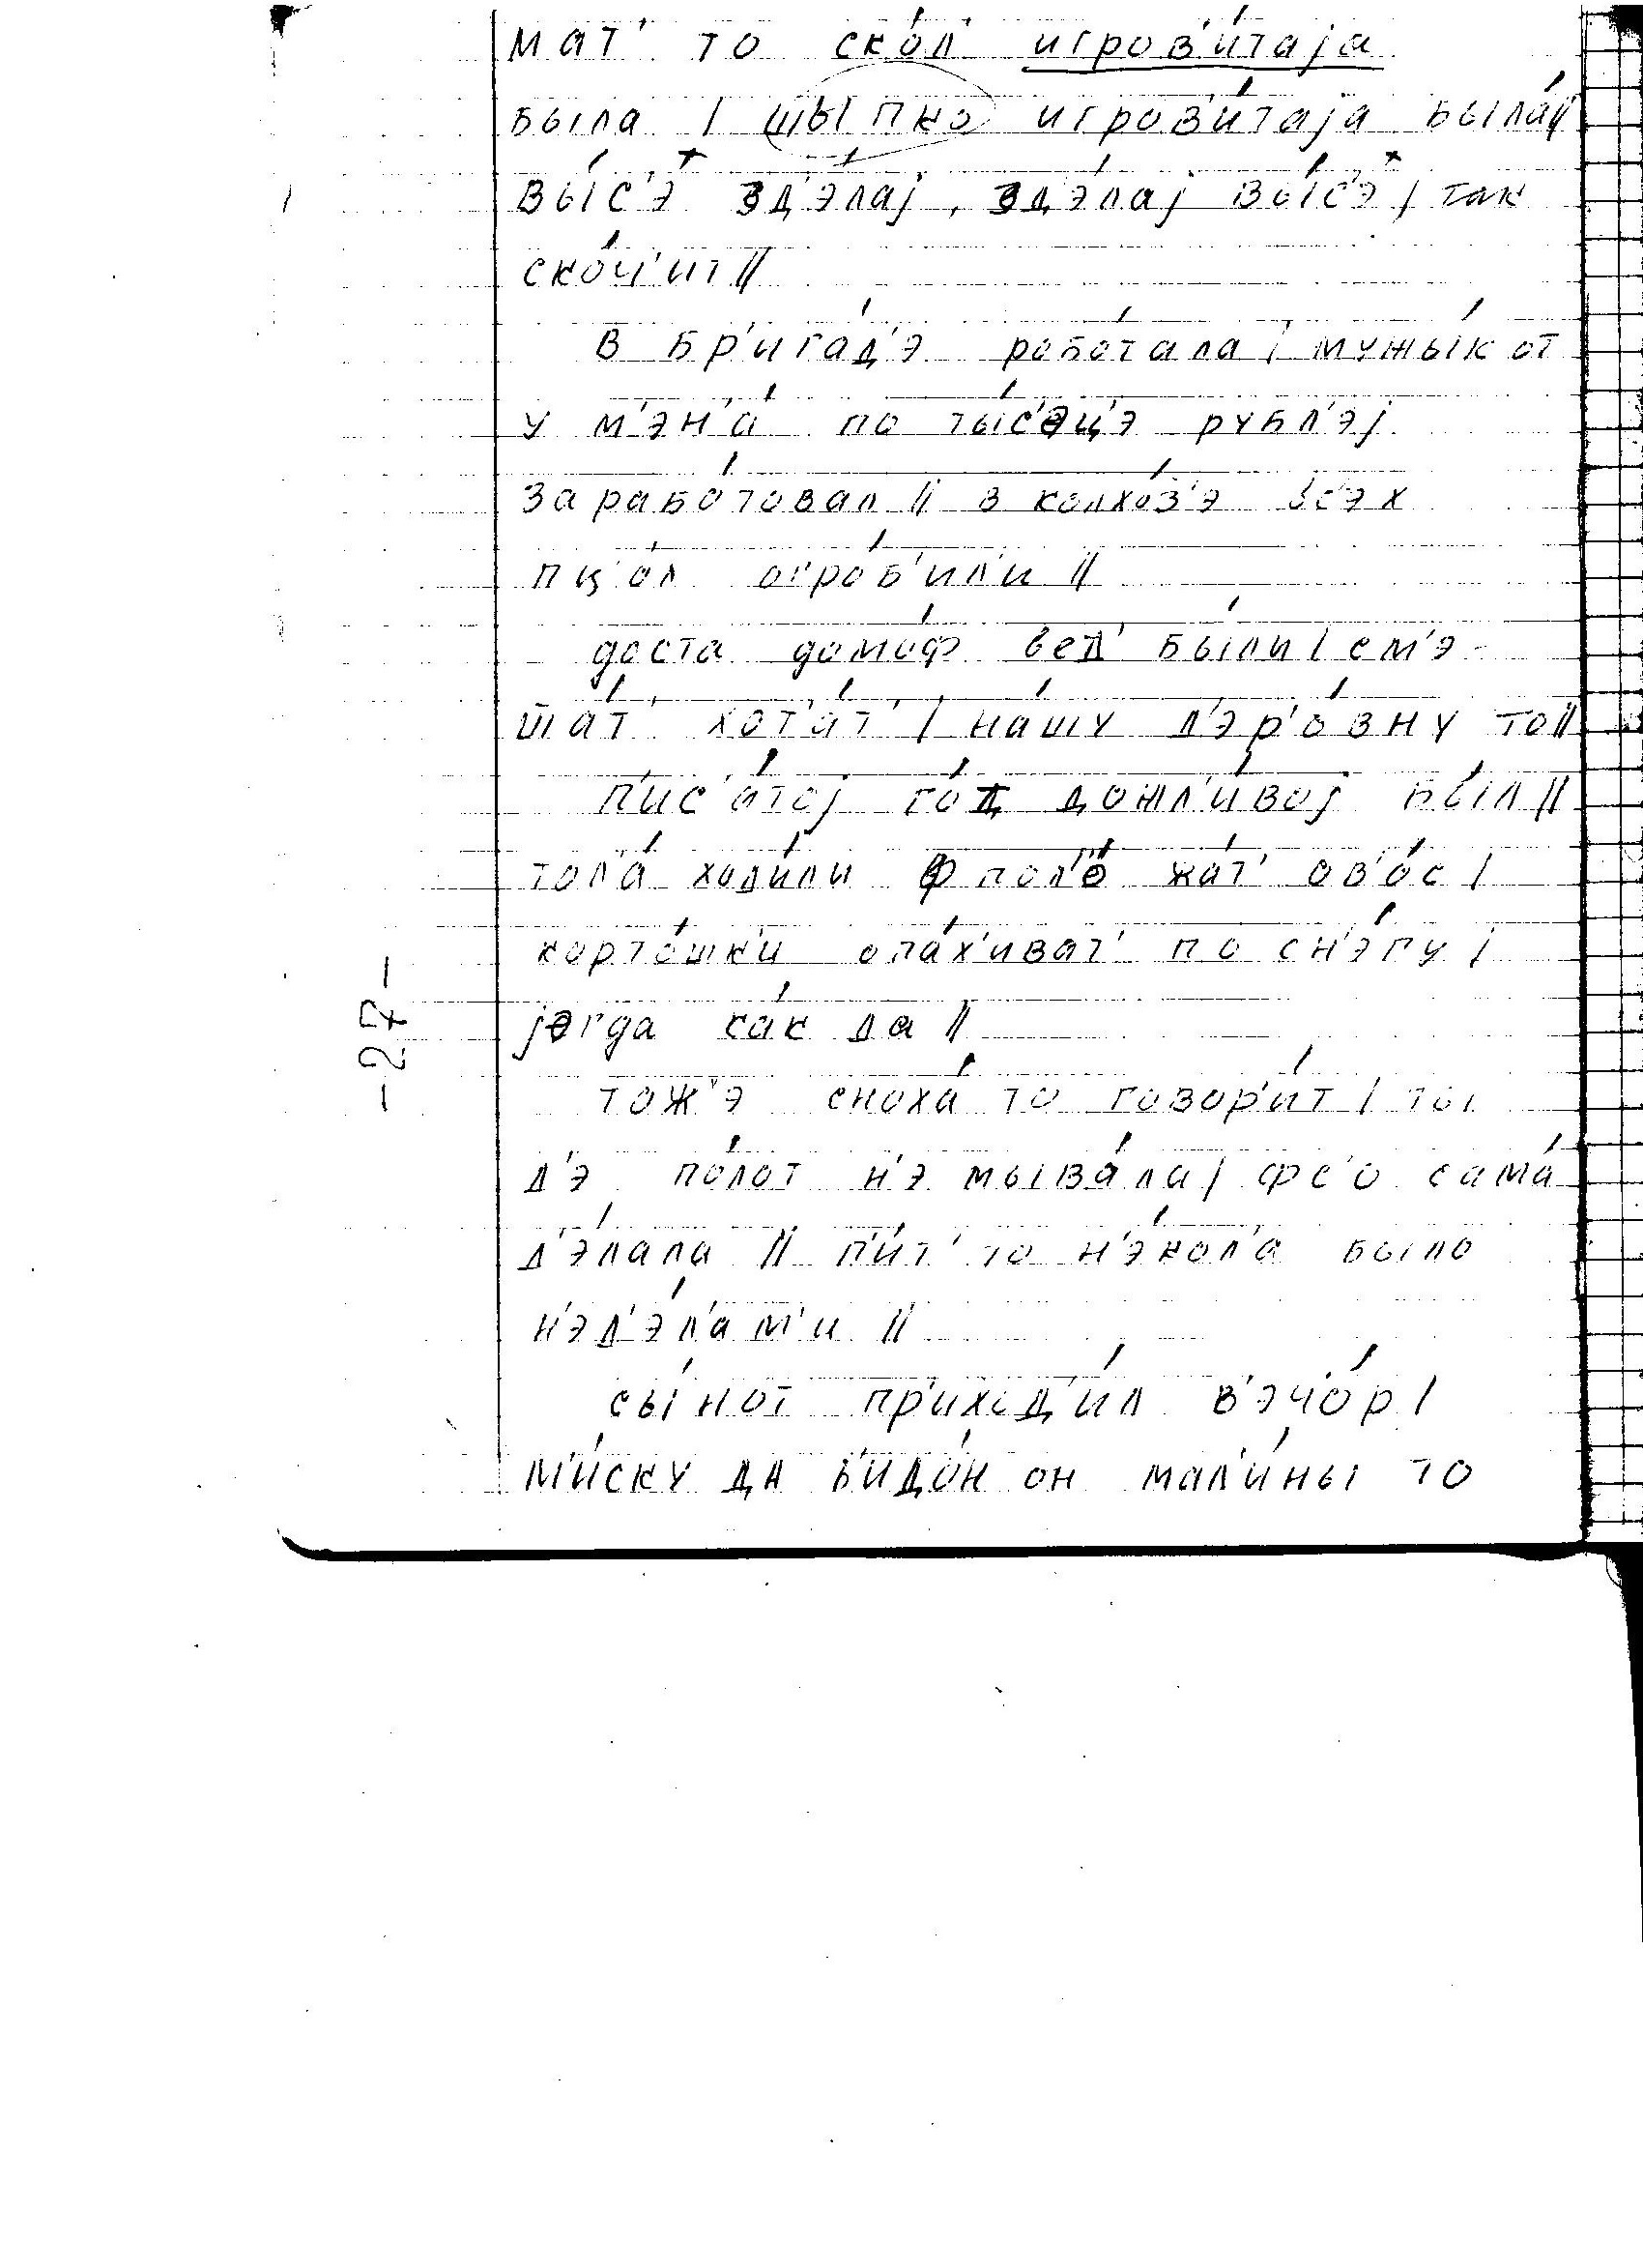 мат' то ско́л' игров'и́таjа
была | шыпко игров'и́таjа была́||
вы́с'э зд'э́лаj, зд'э́лаj вы́с'э | так
ско́ч'ит||
в бр'ига́д'э робо́тала | мужы́к от
у м'эн'а́ по ты́с'ец'э рубл'эj
зарабо́товал || в колхо́з'э вс'эх
пц'о́л огро́б'ил'и ||
доста домо́ф вед' бы́ли | см'э-
ша́т' хот'а́т' | на́шу д'эр'о́вну то||
п'ис'а́тоj го́д дожл'и́воj бы́л||
тол'а́ ход'и́ли ф пол'о́ жа́т' ов'о́с |
карто́шк'и опа́х'иват' по сн'э́гу |
jегда ка́к да ||
тож'э сноха́ то говор'и́т | ты
д'э по́лот н'э мыва́ла | фс'о сама́
д'э́лала || п'и́т' то н'э́кол'а было
н'эд'э́л'ам'и ||
сы́нот пр'иход'и́л в'эчо́р |
м'и́ску да б'идо́н он мал'и́ны то
-27-